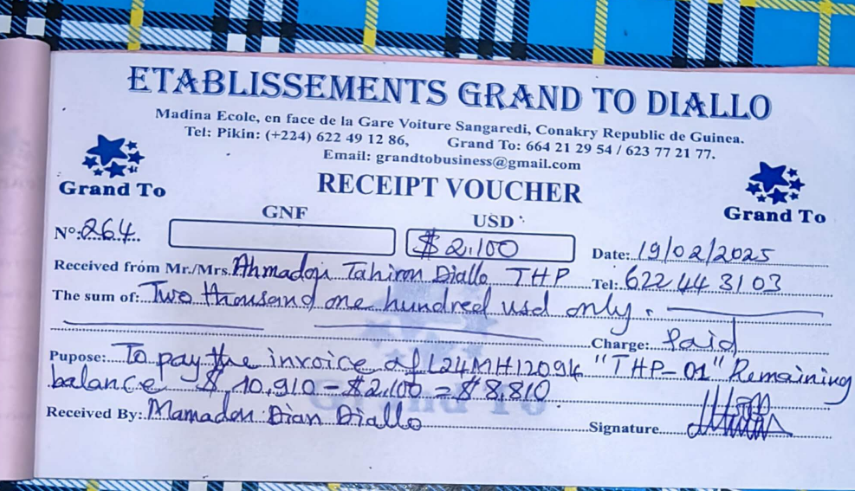 ETABLISSEMENTS GRAND TO DIALLO
Madina Ecole, en face de la Gare Voiture Sangaredi, Conakry Republic de Guinea.
Tel: Pikin: (+224) 622 49 12 86, Grand To: 664 21 29 54 / 623 77 21 77.
Email: grandtobusiness@gmail.com
Grand To RECEIPT VOUCHER Grand To
GNF USD
N°: 264 $ 2.100 Date: 19/02/2025
Received from Mr./Mrs. Tahirou Diallo THP Tel: 622 44 31 03
The sum of: Two thousand one hundred usd only.
Charge: Paid
Pupose: To pay the invoice of "THP-01" Remaining
balance $ 10,910 - $2,100 = $ 8,810
Received By: Mamadou Dian Diallo Signature